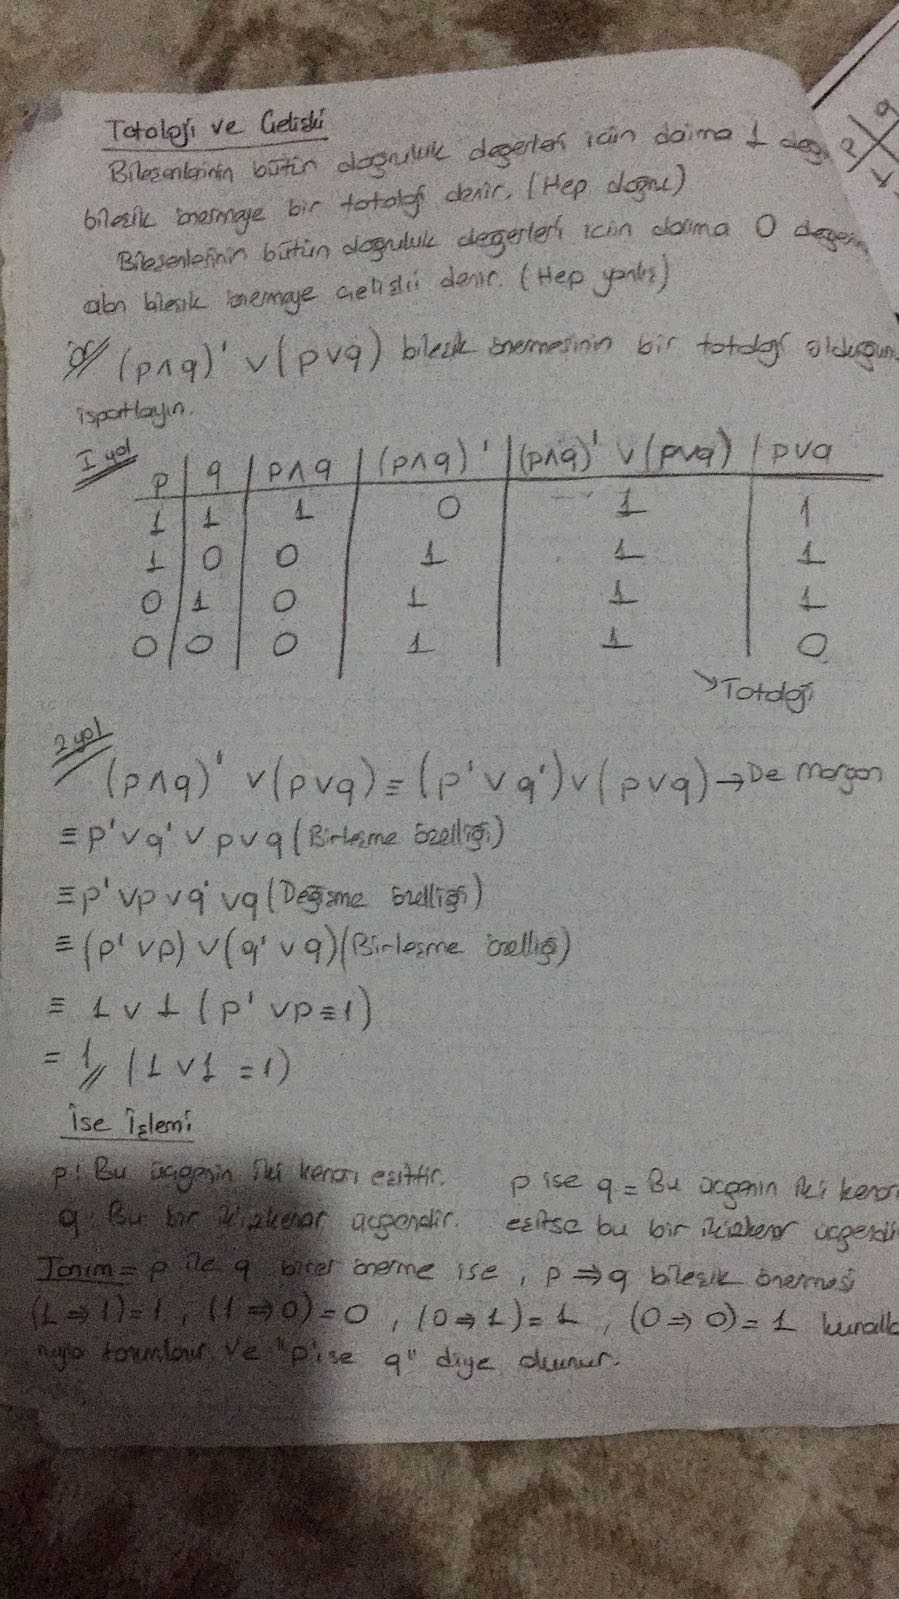 Totoloji ve Çelişki
Bileşenlerinin bütün doğruluk değerleri için daima 1 değ
bileşik önermeye bir totoloji denir. (Hep doğru)
Bileşenlerinin bütün doğruluk değerleri için daima 0 değeri
alan bileşik önermeye çelişki denir. (Hep yanlış)
ör// (p∧q)' ∨ (p∨q) bileşik önermesinin bir totoloji olduğunu
ispatlayın.
I yol
p | q | p∧q | (p∧q)' | (p∧q)' ∨ (p∨q) | p∨q
1 1 1 0 1 1
1 0 0 1 1 1
0 1 0 1 1 1
0 0 0 1 1 0
↘Totoloji
2 yol
(p∧q)' ∨ (p∨q) ≡ (p' ∨ q') ∨ (p∨q) → De Morgan
≡ p' ∨ q' ∨ p∨q (Birleşme özelliği)
≡ p' ∨p ∨q' ∨q (Değişme özelliği)
≡ (p' ∨p) ∨ (q' ∨ q) (Birleşme özelliği)
≡ 1 ∨ 1 (p' ∨p≡1)
= 1// (1 ∨ 1 = 1)
İse İşlemi
p: Bu üçgenin iki kenarı eşittir. p ise q = Bu üçgenin iki kenarı
q: Bu bir ikizkenar üçgendir. eşitse bu bir ikizkenar üçgendi
Tanım = p ile q birer önerme ise, p ⇒ q bileşik önermesi
(1 ⇒ 1) = 1, (1 ⇒ 0) = 0, (0 ⇒ 1) = 1, (0 ⇒ 0) = 1 kuralla
rıyla tanımlanır. Ve "p ise q" diye okunur.